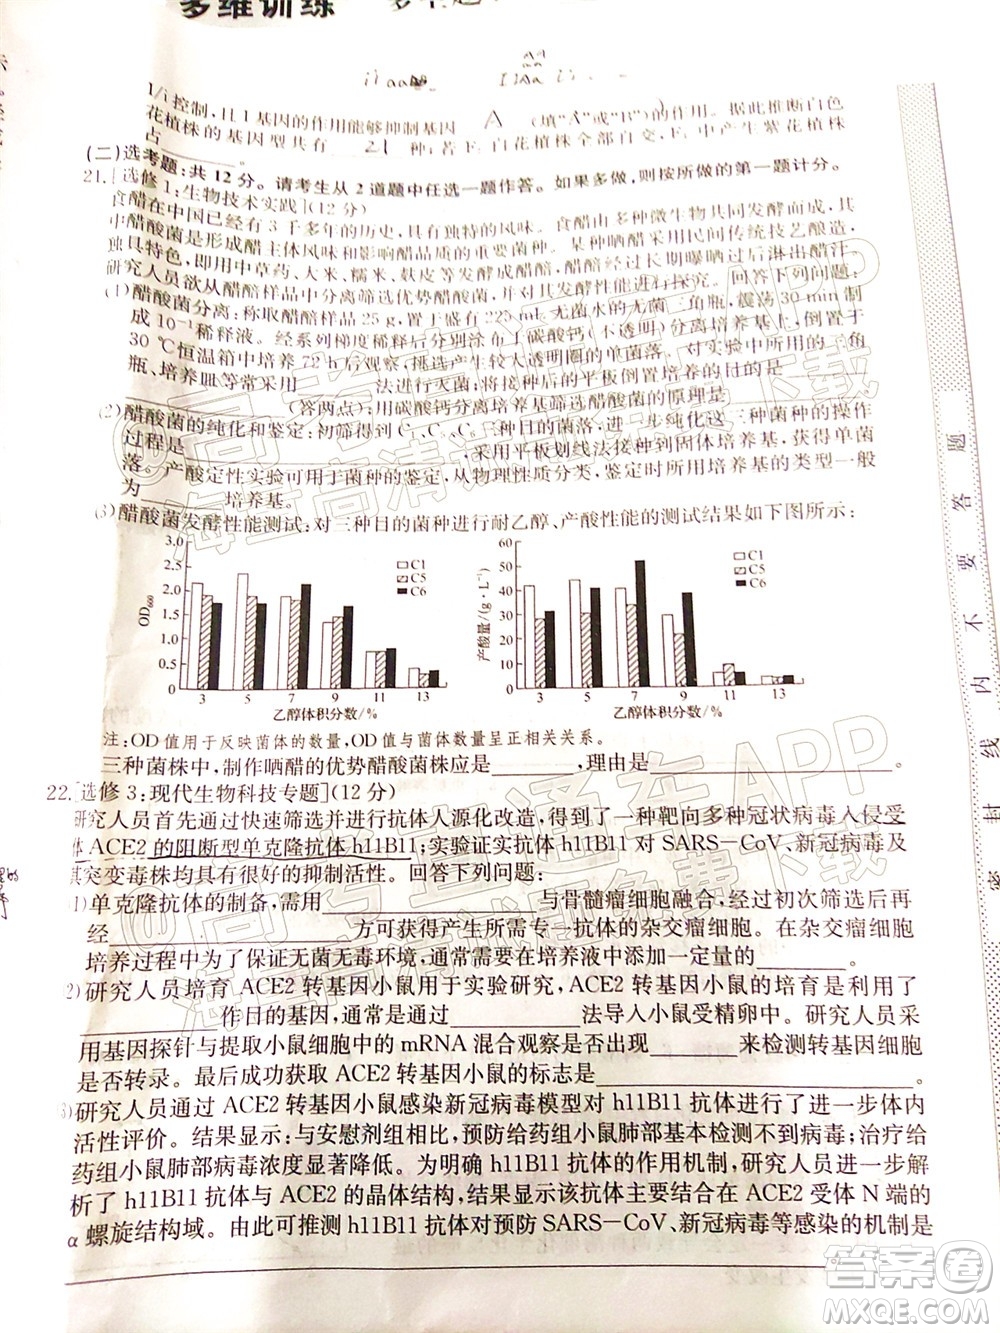 多维训练
I/i控制,且I基因的作用能够抑制基因 A (填"A"或"B")的作用。据此推断白色
花植株的基因型共有 21 种;若F₁白花植株全部自交,F₂中产生紫花植株
占________。
(二)选考题:共12分。请考生从2道题中任选一题作答。如果多做,则按所做的第一题计分。
21.[选修1:生物技术实践](12分)
食醋在中国已经有3千多年的历史,具有独特的风味。食醋由多种微生物共同发酵而成,其
中醋酸菌是形成醋主体风味和影响醋品质的重要菌种。某功晒醋采用民间传统技艺酿造,
独具特色,即用中草药、大米、糯米、麦子、麸皮等发酵成醋醅,长期曝晒过后淋出醋汁。
研究人员欲从醋醅样品中分离筛选优势醋酸菌,并对其发酵性能进行探究。回答下列问题:
(1)醋酸菌分离:称取醋醅样品25 g,置于盛有225 mL无菌水的无菌三角瓶,震荡30 min制
成10⁻¹稀释液。经系列梯度稀释后分别涂布于碳酸钙(不透明)分离培养基上,倒置于
30 ℃恒温箱中培养72 h后观察,挑选产生较大透明圈的单菌落。实验中所用的三角
瓶、培养皿等常采用________法进行灭菌;将接种后的平板倒置培养的目的是________
________(答两点);用碳酸钙分离培养基筛选醋酸菌的原理是________
(2)醋酸菌的纯化和鉴定:初筛得到C₁、C₅、C₆三个菌种,进一步纯化这三种菌种的操作
过程是________,采用平板划线法接种到固体培养基,获得单菌
落。产酸定性实验可用于菌种的鉴定,从物理性质分类,实验所用培养基的类型一般
为________培养基。
(3)醋酸菌发酵性能测试:对三种目的菌种进行耐乙醇、产酸性能的测试结果如下图所示:
3.0 2.5 2.0 1.5 1.0 0.5 0
OD₆₀₀
C1 C5 C6
3 5 7 9 11 13
乙醇体积分数/%
60 50 40 30 20 10 0
产酸量/(g·L⁻¹)
C1 C5 C6
3 5 7 9 11 13
乙醇体积分数/%
注:OD值用于反映菌体的数量,OD值与菌体数量呈正相关关系。
三种菌株中,制作晒醋的优势醋酸菌株应是________,理由是________。
22.[选修3:现代生物科技专题](12分)
研究人员首先通过快速筛选并进行抗体人源化改造,得到了一种靶向多种冠状病毒入侵受
体ACE2的阻断型单克隆抗体h11B11;实验证实抗体h11B11对SARS-CoV、新冠病毒及
其突变毒株均具有很好的抑制活性。回答下列问题:
(1)单克隆抗体的制备,需用________与骨髓瘤细胞融合,经过初次筛选后再
经________方可获得产生所需专一抗体的杂交瘤细胞。在杂交瘤细胞
培养过程中为了保证无菌无毒环境,通常需要在培养液中添加一定量的________。
(2)研究人员培育ACE2转基因小鼠用于实验研究,ACE2转基因小鼠的培育是利用了
________作目的基因,通常是通过________法导入小鼠受精卵中。研究人员采
用基因探针与提取小鼠细胞中的mRNA混合观察是否出现________来检测转基因
是否转录。最后成功获取ACE2转基因小鼠的标志是________。
(3)研究人员通过ACE2转基因小鼠感染新冠病毒模型对h11B11抗体进行了进一步体内
活性评价。结果显示:与安慰剂组相比,预防给药组小鼠肺部基本检测不到病毒;治疗给
药组小鼠肺部病毒浓度显著降低。为明确h11B11抗体的作用机制,研究人员进一步解
析了h11B11抗体与ACE2的晶体结构,结果显示该抗体主要结合在ACE2受体N端的
α螺旋结构域。由此可推测h11B11抗体对预防SARS-CoV、新冠病毒等感染的机制是
________。
密 封 线 内 不 要 答 题
@高考直通车APP
海量高清试题免费下载
@高考直通车APP
海量高清试题免费下载
答案圈
MXQE.COM